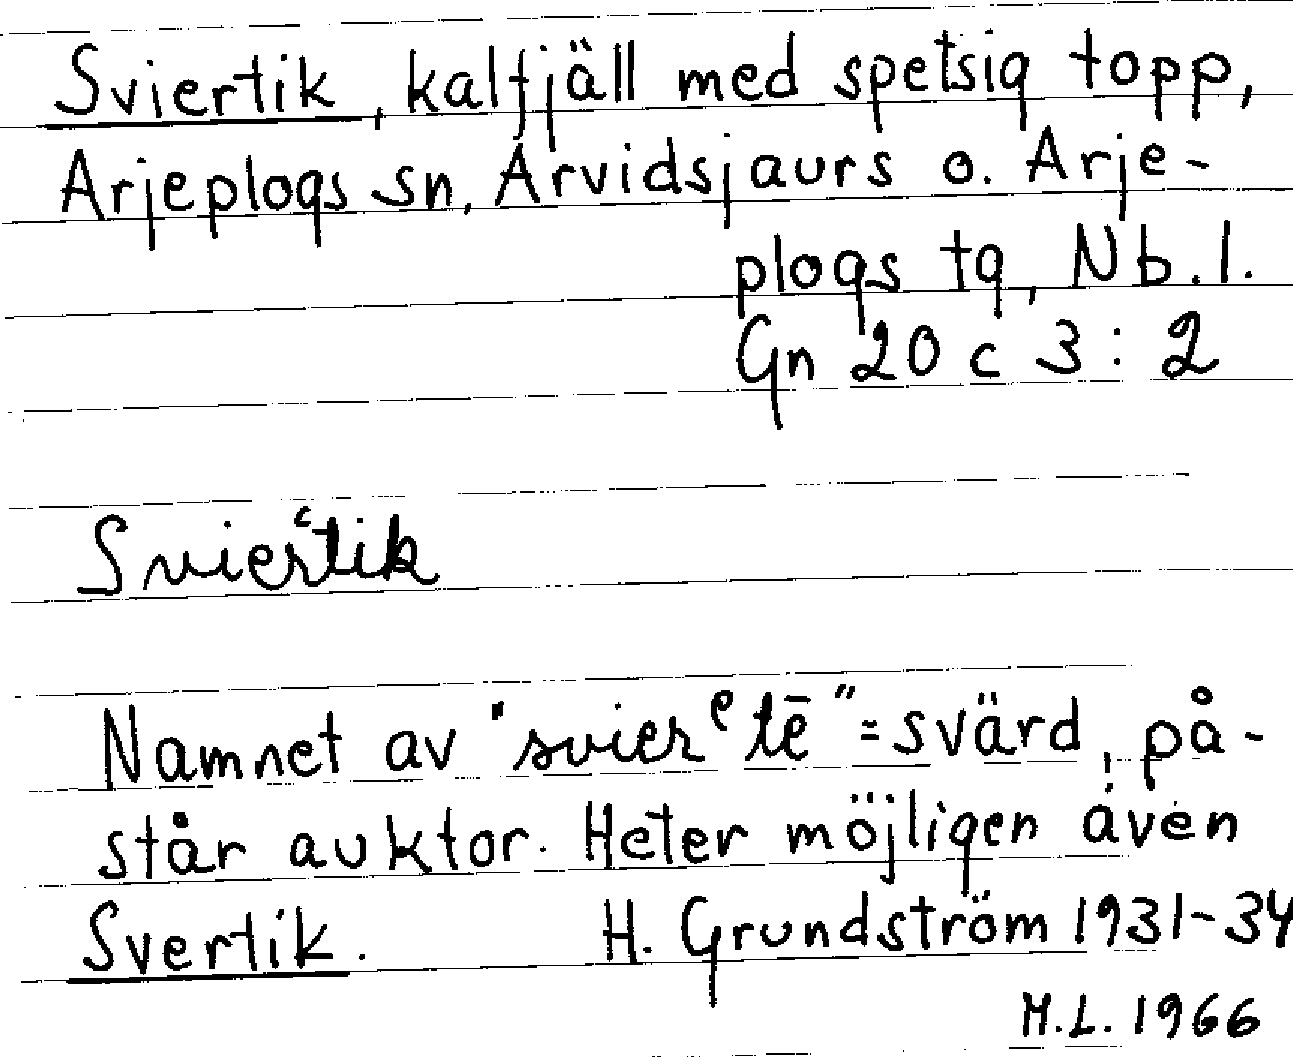 Sviertik, kalfjäll med spetsig topp,
Arjeplogs sn, Arvidsjaurs o. Arje-
plogs tg, Nb.l.
Gn 20 c 3 : 2
Svierʿtik
Namnet av "svierᵉtē" = svärd, på-
står auktor. Heter möjligen även
Svertik. H. Grundström 1931-34
M.L. 1966